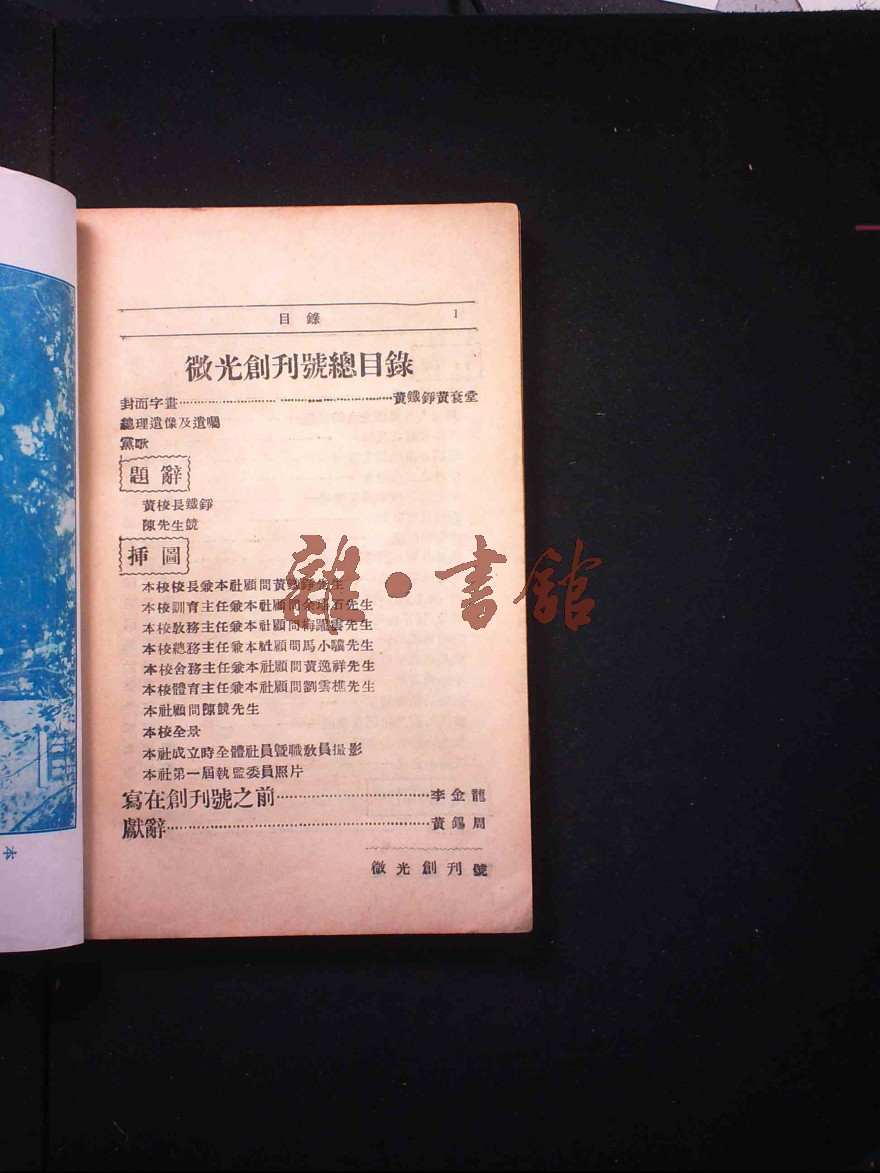 目錄 1
微光創刊號總目錄
封面字畫…………………… ……………………黃鐵錚黃袞堂
總理遺像及遺囑
黨歌
題辭
黃校長鐵錚
陳先生競
挿圖
本校校長兼本社顧問黃鐵錚先生
本校訓育主任兼本社顧問余瑤石先生
本校敎務主任兼本社顧問梅躍雲先生
本校總務主任兼本社顧問馬小驥先生
本校舍務主任兼本社顧問黃逸祥先生
本校體育主任兼本社顧問劉雲樵先生
本社顧問陳競先生
本校全景
本社成立時全體社員曁職敎員撮影
本社第一屆執監委員照片
寫在創刊號之前……………………李金龍
獻辭……………………………………黃錫周
微光創刊號
雜·書舘
本